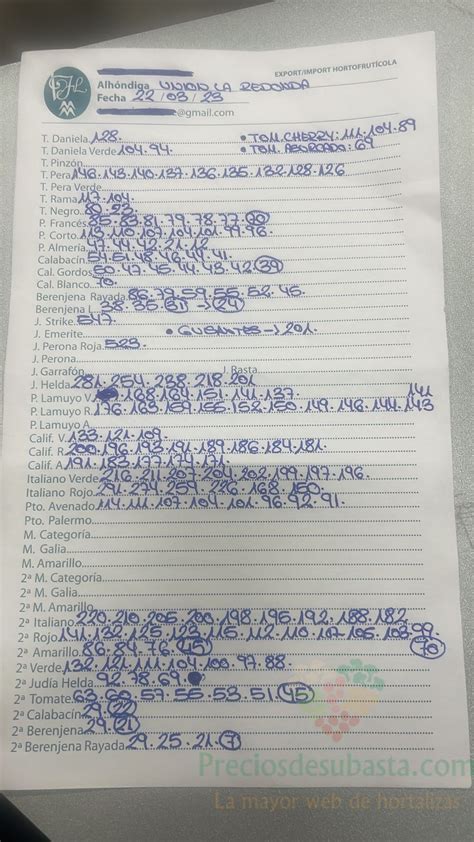 EXPORT/IMPORT HORTOFRUTÍCOLA
Alhóndiga UNION LA REDONDA
Fecha 22/03/23
@gmail.com
T. Daniela 128. • TOM.CHERRY:111.104.89
T. Daniela Verde 104.94. • TOM. ASURCADO: 69
T. Pinzón
T. Pera 146.143.140.137.136.135.132.128.126
T. Pera Verde
T. Rama 117.104
T. Negro
P. Francés 85.83.81.79.78.77.
P. Corto 113.110.107.104.101.99.96
P. Almería 47.44.42.21.12
Calabacín 54.51.48.46.44.41
Cal. Gordos 50.47.45.44.43.42.39
Cal. Blanco 70.
Berenjena Rayada 86.79.59.55.52.45
Berenjena L. 38.35 31 → 24
J. Strike 547.
J. Emerite • GUISANTES → 201.
J. Perona Roja 523
J. Perona
J. Garrafón J. Rasta
J. Helda 281.254.238.218.201
P. Lamuyo V. 168.164.151.141.137. 141
P. Lamuyo R. 176.163.159.155.152.150.149.146.144.143
P. Lamuyo A.
Calif. V. 133.121.109
Calif. R. 200.196.193.191.189.186.184.181.
Calif. A. 191.183.177.174.171.
Italiano Verde 216.211.207.204.202.199.197.196.
Italiano Rojo 291.274.259.226.168.150.
Pto. Avenado 114.111.107.104.101.96.92.91.
Pto. Palermo
M. Categoría
M. Galia
M. Amarillo
2ª M. Categoría
2ª M. Galia
2ª M. Amarillo
2ª Italiano 220.210.205.200.198.195.192.188.182
2ª Rojo 141.132.125.123.115.112.110.107.105.103.99.
2ª Amarillo 86.84.76.45 70
2ª Verde 132.121.111.104.100.97.88.
2ª Judía Helda 92.78.69.
2ª Tomate 63.60.57.55.53.51.45
2ª Calabacín 29.22
2ª Berenjena 29.21
2ª Berenjena Rayada 29.25.21.7
Preciosdesubasta.com
La mayor web de hortalizas